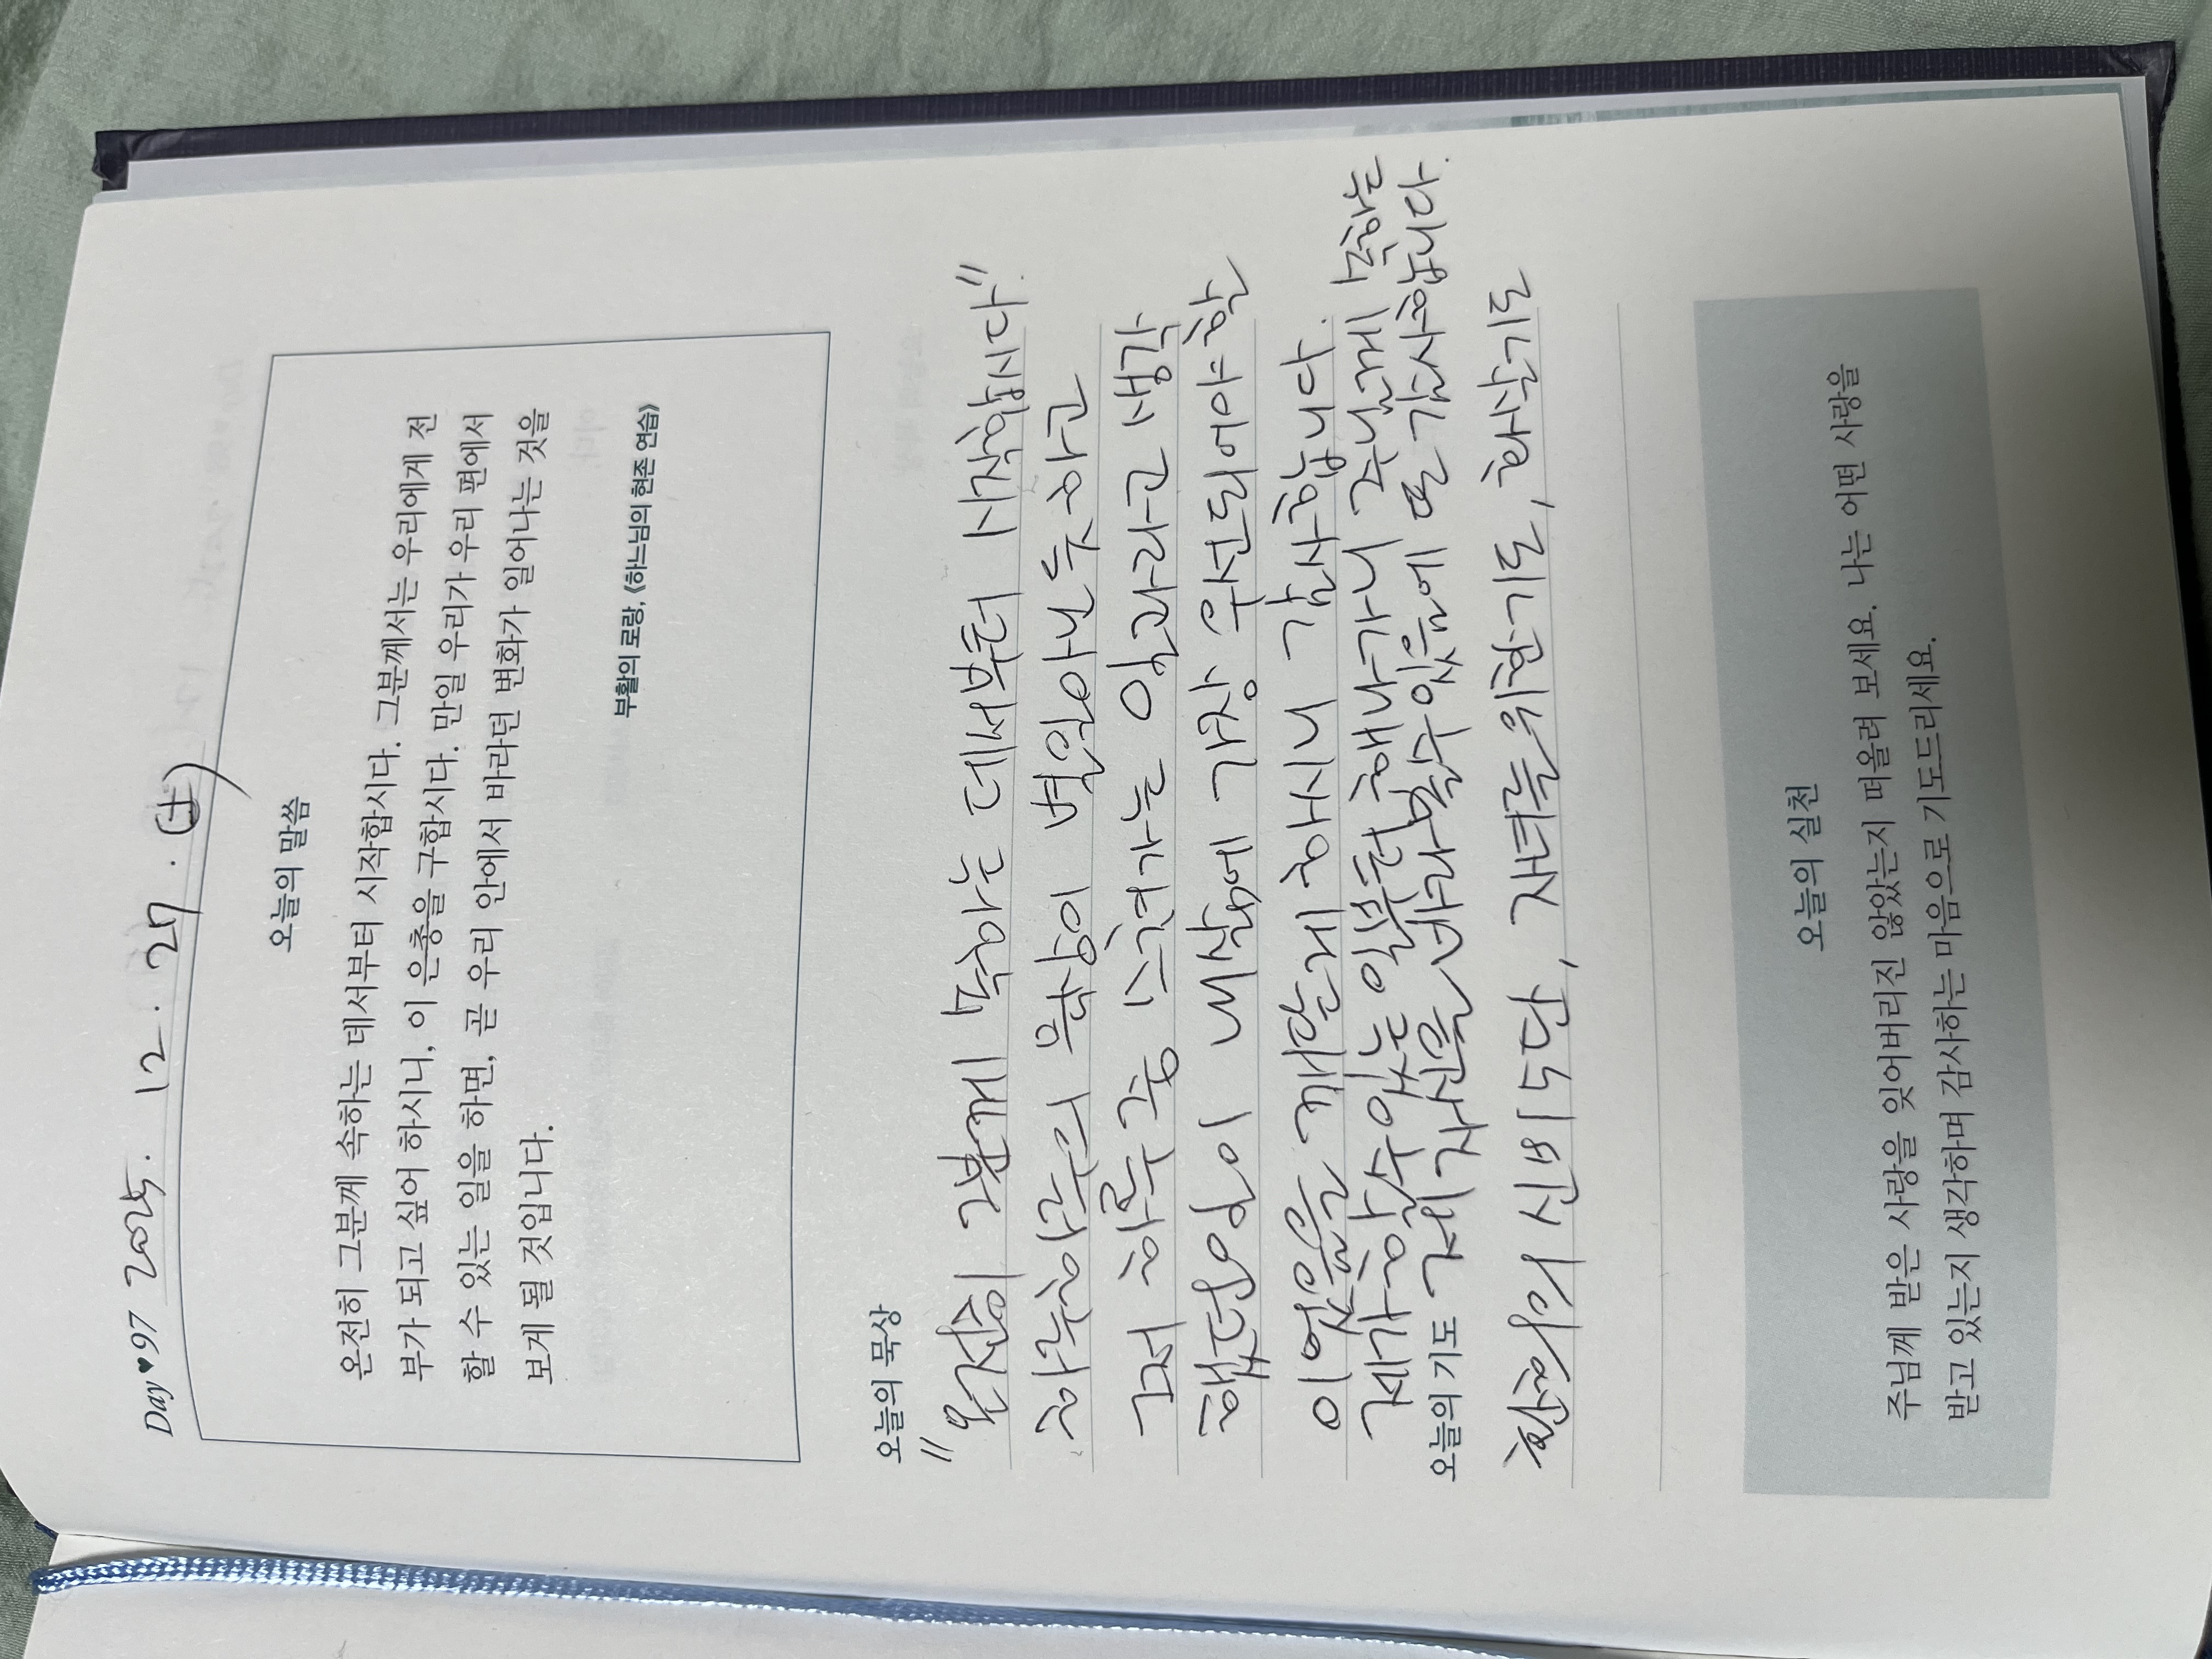 Day♥97 2025. 12. 27. (土)
오늘의 말씀
온전히 그분께 속하는 데서부터 시작합시다. 그분께서는 우리에게 전
부가 되고 싶어 하시니, 이 은총을 구합시다. 만일 우리가 우리 편에서
할 수 있는 일을 하면, 곧 우리 안에서 바라던 변화가 일어나는 것을
보게 될 것입니다.
부활의 로랑, 《하느님의 현존 연습》
오늘의 묵상
"온전히 그분께 속하는 데서부터 시작합시다"
하루하루의 묵상이 별일아닌듯하고
그저 하루 중 스쳐가는 일과라고 생각
했던일이 내삶에 가장 우선되어야할
이었음을 깨닫게 하시니 감사합니다.
제가 할수있는 일부터 해나가니 주님께 속하는
오늘의 기도 제 자신을 바라볼수있음에 또 감사합니다.
환희의 신비 5단, 자녀를위한기도, 화살기도
오늘의 실천
주님께 받은 사랑을 잊어버리진 않았는지 떠올려 보세요. 나는 어떤 사랑을
받고 있는지 생각하며 감사하는 마음으로 기도드리세요.